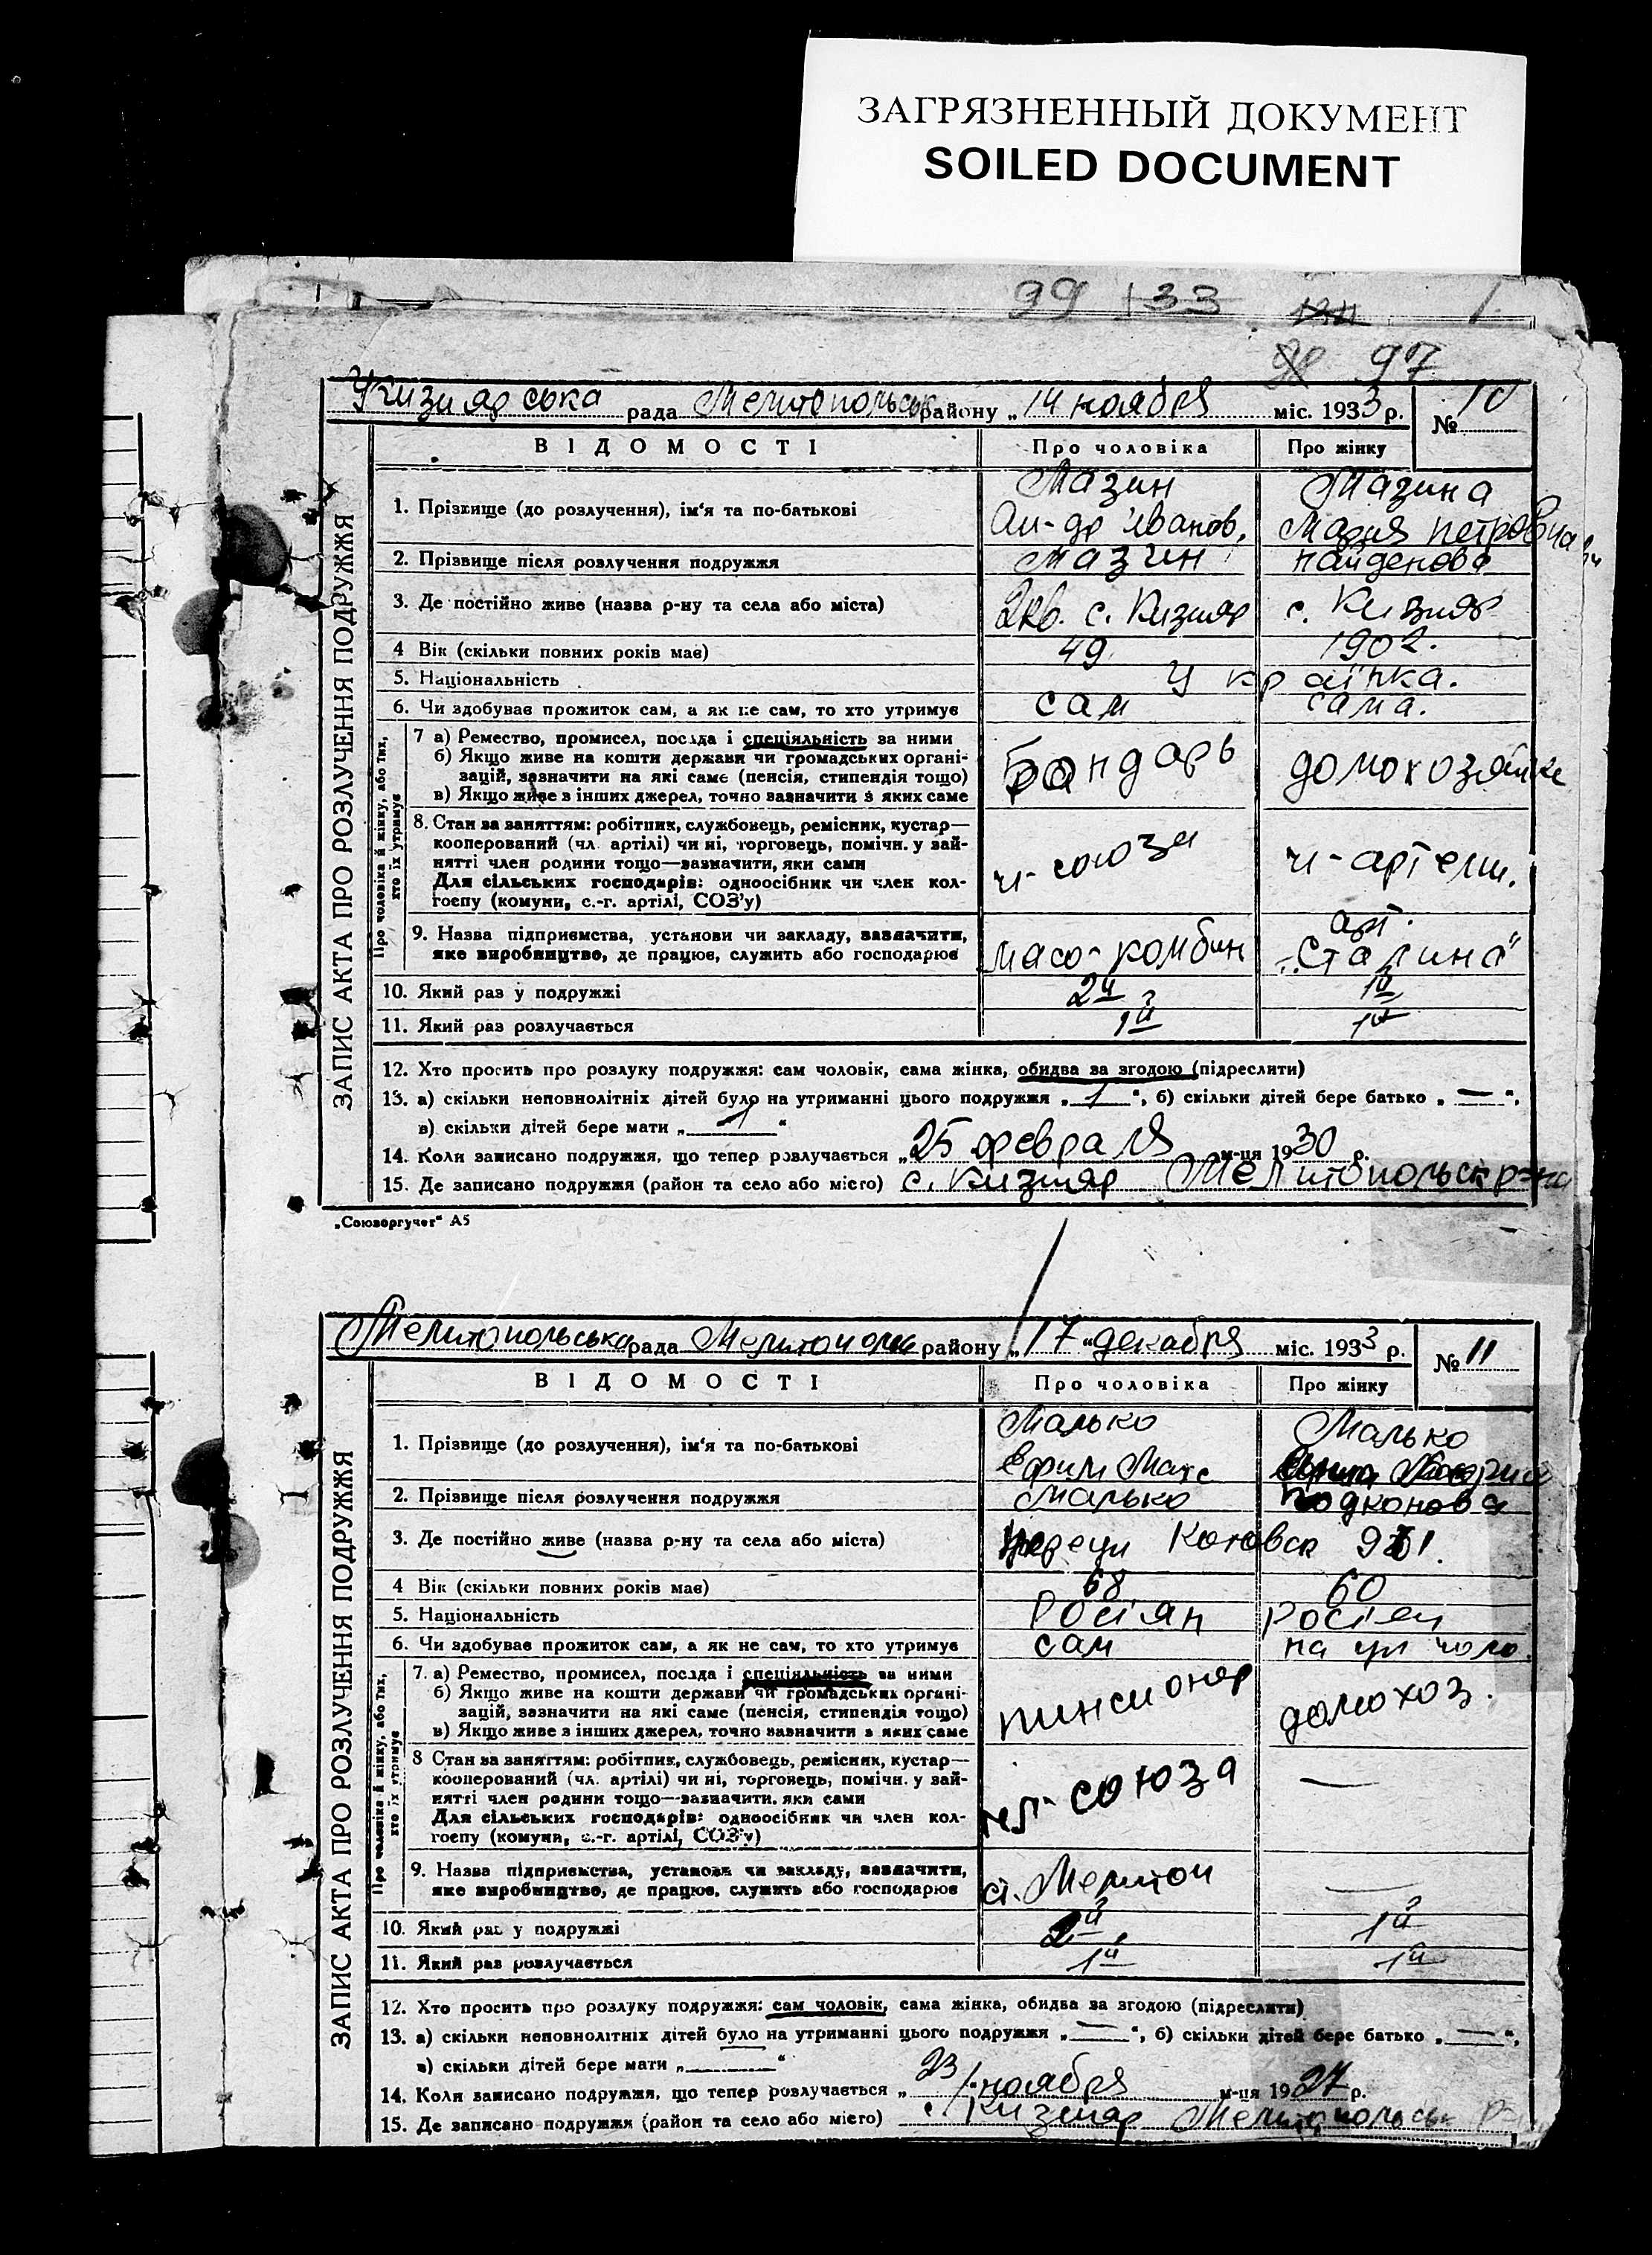 ЗАГРЯЗНЕННЫЙ ДОКУМЕНТ
SOILED DOCUMENT
99 133 1
97
Кизиярська рада Мелитопольськ району „14 ноября міс. 1933 р. № 10
ВІДОМОСТІ Про чоловіка Про жінку
ЗАПИС АКТА ПРО РОЗЛУЧЕННЯ ПОДРУЖЖЯ
Мазин Мазина
1. Прізвище (до розлучення), ім‘я та по-батькові Ал-др Иванов. Мария Петровна
2. Прізвище після розлучення подружжя Мазин Найденова
3. Де постійно живе (назва р-ну та села або міста) с. Кизияр с. Кизияр
4 Вік (скільки повних років має) 49 1902.
5. Національність Українка.
6. Чи здобував прожиток сам, а як не сам, то хто утримує сам сама.
Про чоловіка й жінку, або тих, хто їх утримує
7 а) Ремество, промисел, посада і спеціяльність за ними
б) Якщо живе на кошти держави чи громадських органі-
зацій, зазначити на які саме (пенсія, стипендія тощо)
в) Якщо живе з інших джерел, точно зазначити з яких саме
Бондарь домохозяйка
8. Стан за заняттям: робітник, службовець, ремісник, кустар—
кооперований (чл. артілі) чи ні, торговець, помічн. у зай-
нятті член родини тощо—зазначити, яки сами
Для сільських господарів: одноосібник чи член кол-
госпу (комуни, с.-г. артілі, СОЗ’у)
ч-союза ч-артели.
9. Назва підприємства, установи чи закладу, зазначити,
яке виробництво, де працює, служить або господарює
масо-комбин арт. „Сталина“
10. Який раз у подружжі 2й 1й
11. Який раз розлучається 1й 1й
12. Хто просить про розлуку подружжя: сам чоловік, сама жінка, обидва за згодою (підреслити)
13. а) скільки неповнолітніх дітей було на утриманні цього подружжя „ 1 “, б) скільки дітей бере батько „ — “,
в) скільки дітей бере мати „ 1 “
14. Коли записано подружжя, що тепер розлучається „25 февраля м-ця 1930 р.
15. Де записано подружжя (район та село або місто) с. Кизияр Мелитопольск р-на
„Союзоргучет“ А5
Мелитопольська рада Мелитополь району „17“ декабря міс. 1933 р. № 11
ВІДОМОСТІ Про чоловіка Про жінку
ЗАПИС АКТА ПРО РОЗЛУЧЕННЯ ПОДРУЖЖЯ
Малько Малько
1. Прізвище (до розлучення), ім‘я та по-батькові Ефим Макс
2. Прізвище після розлучення подружжя Малько
3. Де постійно живе (назва р-ну та села або міста)
4 Вік (скільки повних років має) 68 60
5. Національність Росіян Росіян
6. Чи здобував прожиток сам, а як не сам, то хто утримує сам на
Про чоловіка й жінку, або тих, хто їх утримує
7. а) Ремество, промисел, посада і спеціяльність за ними
б) Якщо живе на кошти держави чи громадських органі-
зацій, зазначити на які саме (пенсія, стипендія тощо)
в) Якщо живе з інших джерел, точно зазначити з яких саме
пинсионер домохоз.
8 Стан за заняттям: робітник, службовець, ремісник, кустар—
кооперований (чл. артілі) чи ні, торговець, помічн. у зай-
нятті член родини тощо—зазначити, яки сами
Для сільських господарів: одноосібник чи член кол-
госпу (комуни, с.-г. артілі, СОЗ’у)
чл-союза —
9. Назва підприємства, установи чи закладу, зазначити,
яке виробництво, де працює, служить або господарює
ст. Мелитоп —
10. Який раз у подружжі 2й 1й
11. Який раз розлучається 1й 1й
12. Хто просить про розлуку подружжя: сам чоловік, сама жінка, обидва за згодою (підреслити)
13. а) скільки неповнолітніх дітей було на утриманні цього подружжя „ — “, б) скільки дітей бере батько „ — “,
в) скільки дітей бере мати „ “
14. Коли записано подружжя, що тепер розлучається „ 23 ноября м-ця 1927 р.
15. Де записано подружжя (район та село або місто) с. Кизияр Мелитопольськ р-